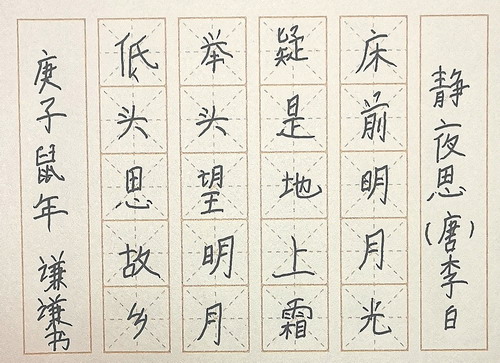 静夜思(唐)李白
床前明月光
疑是地上霜
举头望明月
低头思故乡
庚子鼠年 谦谦书